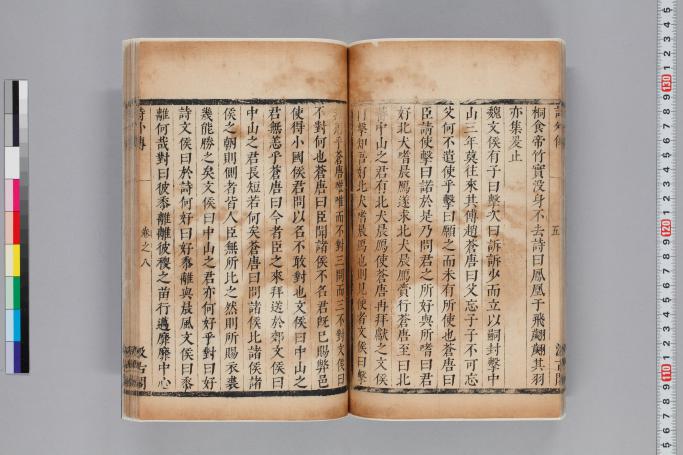 五
桐食帝竹實沒身不去詩曰鳳凰于飛翽翽其羽
亦集爰止
魏文侯有子曰擊次曰訴訴少而立以嗣封擊中
山三年莫往來其傅趙蒼唐曰父忘子子不可忘
父何不遣使乎擊曰願之而未有所使也蒼唐曰
臣請使擊曰諾於是乃問君之所好與所嗜曰君
好北犬嗜晨鴈遂求北犬晨鴈賫行蒼唐至曰北
中山之君有北犬晨鴈使蒼唐再拜獻之文侯
曰擊知吾好北犬嗜晨鴈也則見使者文侯曰擊
無恙乎蒼唐唯唯而不對三問而三不對文侯曰
不對何也蒼唐曰臣聞諸侯不名君既已賜弊邑
使得小國侯君問以名不敢對也文侯曰中山之
君無恙乎蒼唐曰今者臣之來拜送於郊文侯曰
中山之君長短若何矣蒼唐曰問諸侯比諸侯諸
侯之朝則側者皆人臣無所比之然則所賜衣裘
幾能勝之矣文侯曰中山之君亦何好乎對曰好
詩文侯曰於詩何好曰好黍離與晨風文侯曰黍
離何哉對曰彼黍離離彼稷之苗行邁靡靡中心
詩外傳 卷之八 汲古閣
130
120
110